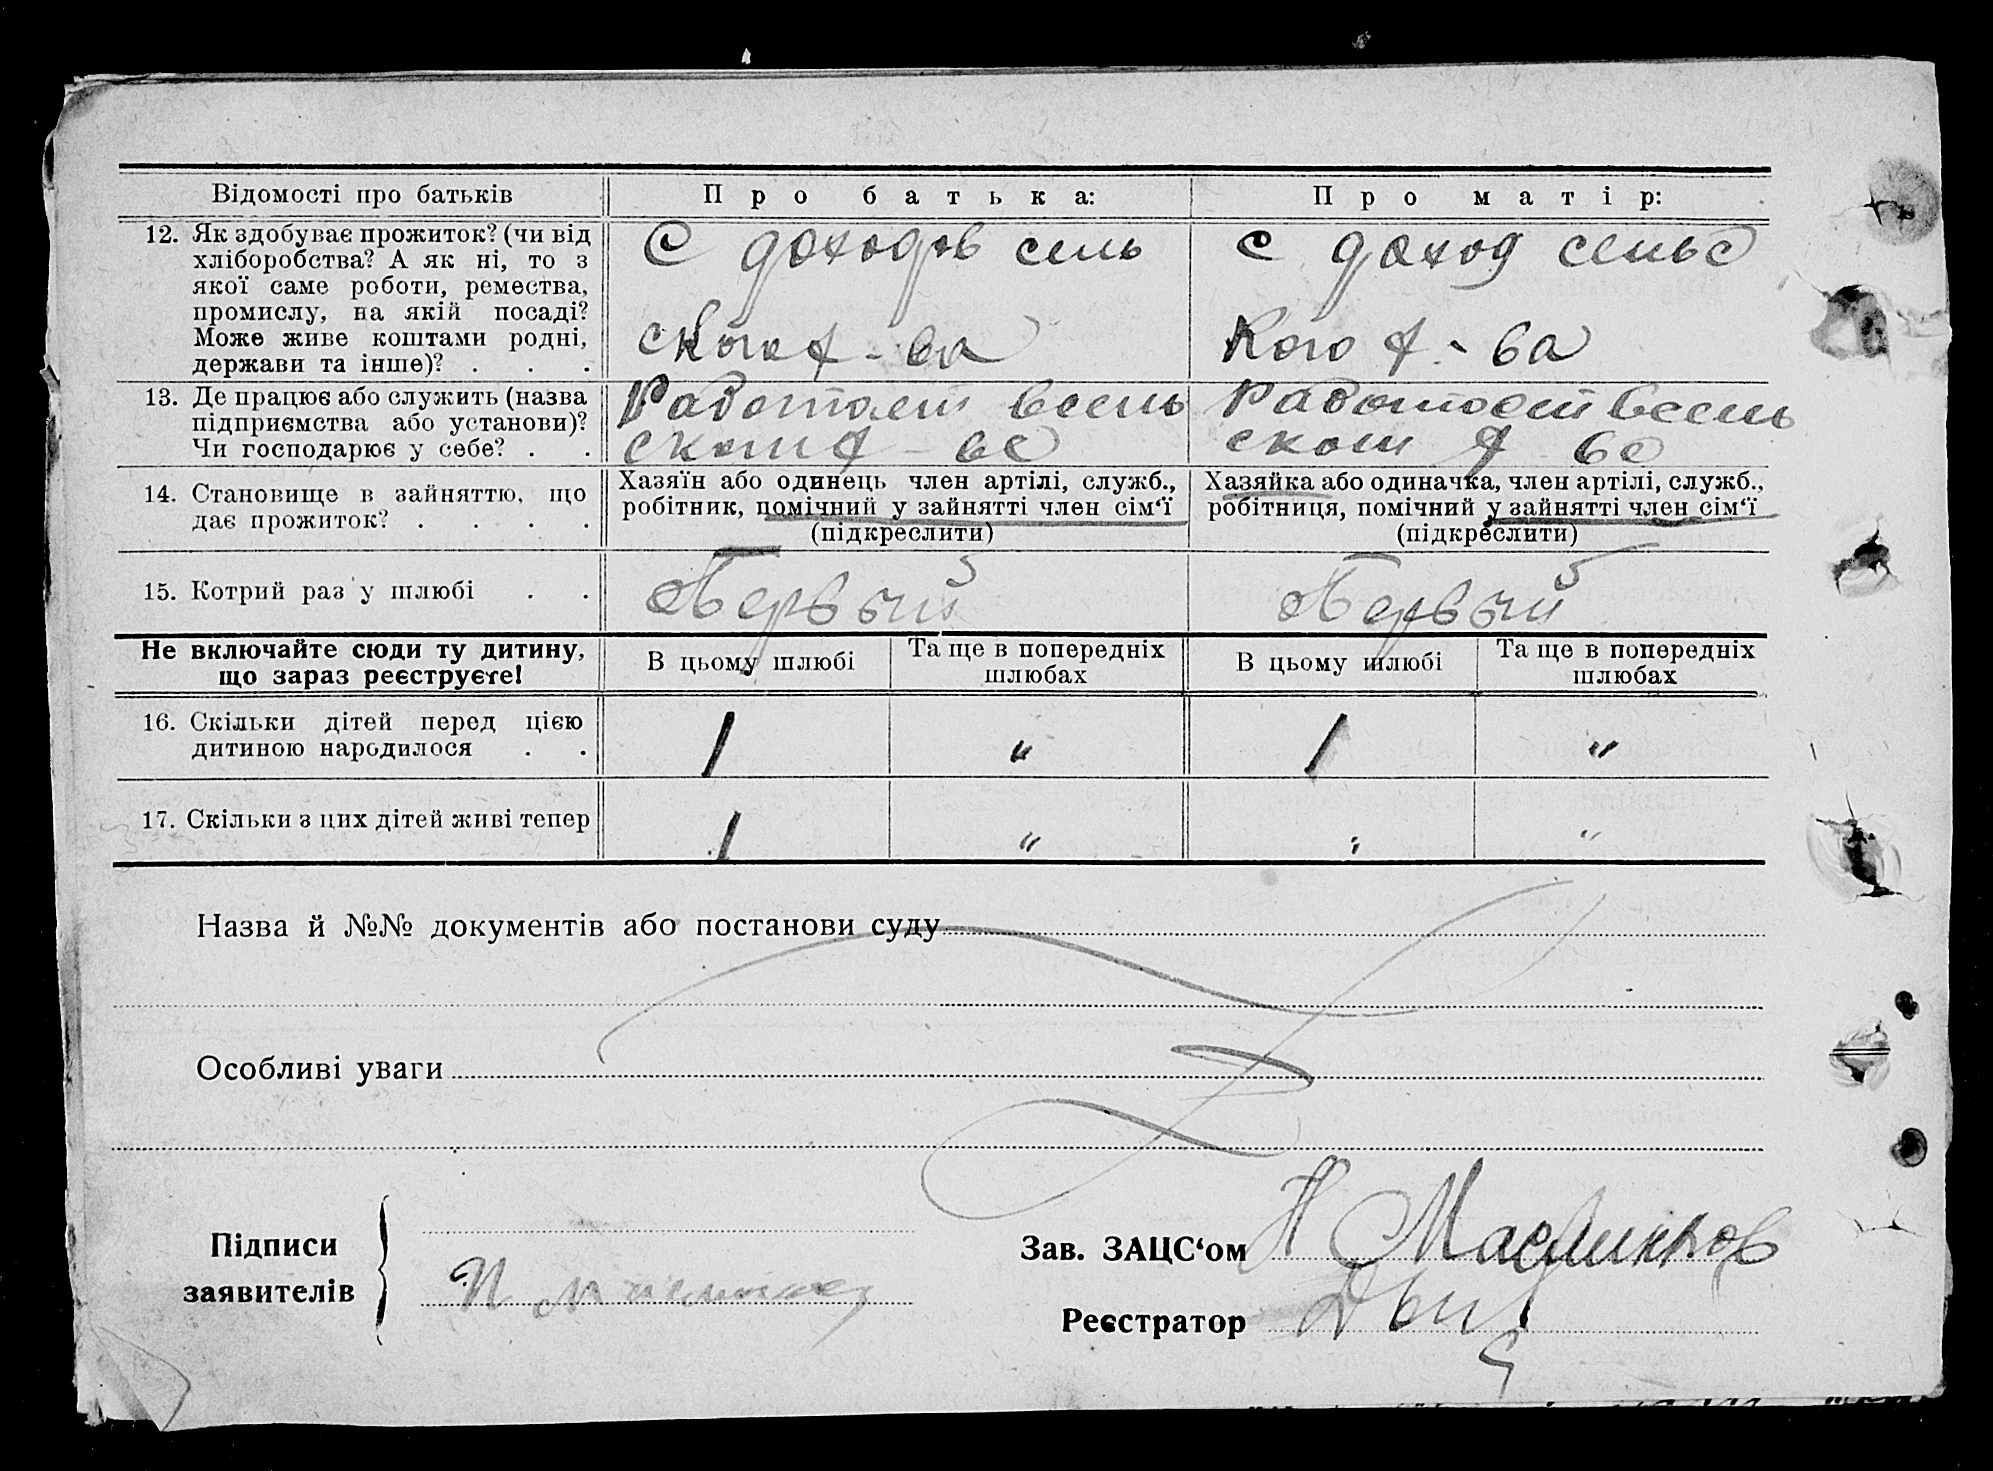 Відомості про батьків
Про батька:
Про матір:
12. Як здобуває прожиток? (чи від
хліборобства? А як ні, то з
якої саме роботи, ремества,
промислу, на якій посаді?
Може живе коштами родні,
держави та інше)? . . .
С доходов сель
ского х-ва
с доход сельс
кого х-ва
13. Де працює або служить (назва
підприємства або установи)?
Чи господарює у себе? . .
Работает в сель
ском х-ве
Работает в сель
ском х-ве
14. Становище в зайняттю, що
дає прожиток? . . . .
Хазяїн або одинець член артілі, служб.,
робітник, помічний у зайнятті член сім‘ї
(підкреслити)
Хазяйка або одиначка, член артілі, служб.,
робітниця, помічний у зайнятті член сім‘ї
(підкреслити)
15. Котрий раз у шлюбі . .
Первый
Первый
Не включайте сюди ту дитину,
що зараз реєструєте!
В цьому шлюбі
Та ще в попередніх
шлюбах
В цьому шлюбі
Та ще в попередніх
шлюбах
16. Скільки дітей перед цією
дитиною народилося . .
1
"
1
"
17. Скільки з цих дітей живі тепер
1
"
"
"
Назва й №№ документів або постанови суду
Особливі уваги
Підписи
заявителів
Зав. ЗАЦС‘ом
Реєстратор